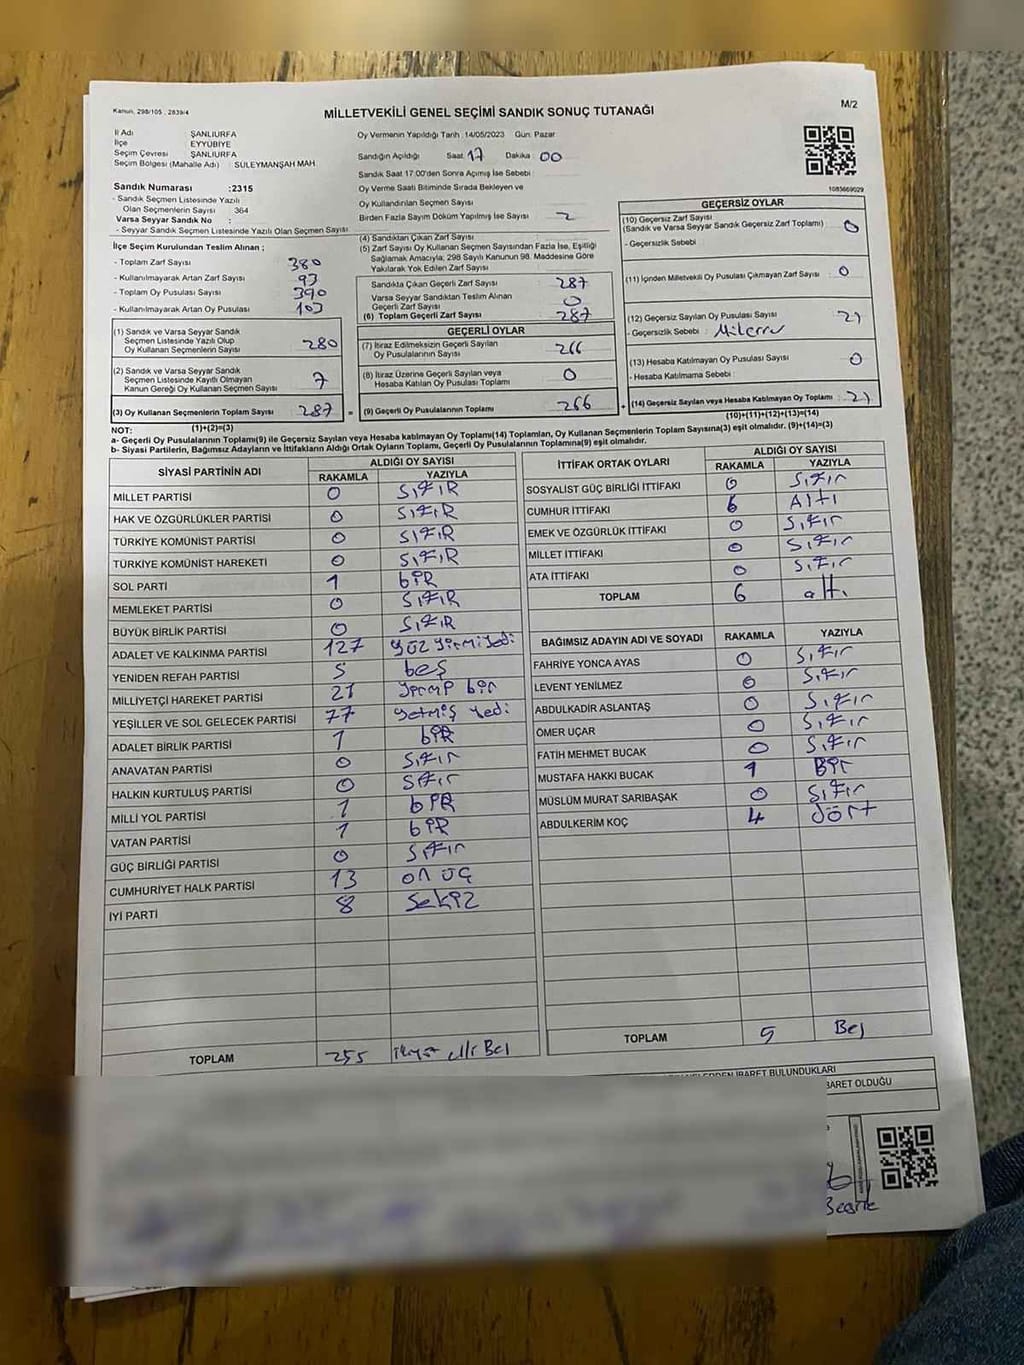 Kanun, 298/105 , 2839/4
MİLLETVEKİLİ GENEL SEÇİMİ SANDIK SONUÇ TUTANAĞI
M/2
İl Adı ŞANLIURFA
İlçe EYYÜBİYE
Seçim Çevresi ŞANLIURFA
Seçim Bölgesi (Mahalle Adı) : SÜLEYMANŞAH MAH
Sandık Numarası :2315
- Sandık Seçmen Listesinde Yazılı
Olan Seçmenlerin Sayısı 364
Varsa Seyyar Sandık No :
- Seyyar Sandık Seçmen Listesinde Yazılı Olan Seçmen Sayısı
Oy Vermenin Yapıldığı Tarih :14/05/2023 Gün: Pazar
Sandığın Açıldığı Saat 17 Dakika 00
Sandık Saat 17:00'den Sonra Açımış İse Sebebi :
Oy Verme Saati Bitiminde Sırada Bekleyen ve
Oy Kullandırılan Seçmen Sayısı
Birden Fazla Sayım Döküm Yapılmış İse Sayısı 2
1083669029
İlçe Seçim Kurulundan Teslim Alınan ;
- Toplam Zarf Sayısı 380
- Kullanılmayarak Artan Zarf Sayısı 93
- Toplam Oy Pusulası Sayısı 390
- Kullanılmayarak Artan Oy Pusulası 103
(1) Sandık ve Varsa Seyyar Sandık
Seçmen Listesinde Yazılı Olup
Oy Kullanan Seçmenlerin Sayısı 280
(2) Sandık ve Varsa Seyyar Sandık
Seçmen Listesinde Kayıtlı Olmayan
Kanun Gereği Oy Kullanan Seçmen Sayısı 7
(3) Oy Kullanan Seçmenlerin Toplam Sayısı 287 =
(1)+(2)=(3)
(4) Sandıktan Çıkan Zarf Sayısı
(5) Zarf Sayısı Oy Kullanan Seçmen Sayısından Fazla İse, Eşitliği
Sağlamak Amacıyla; 298 Sayılı Kanunun 98. Maddesine Göre
Yakılarak Yok Edilen Zarf Sayısı
Sandıkta Çıkan Geçerli Zarf Sayısı 287
Varsa Seyyar Sandıktan Teslim Alınan
Geçerli Zarf Sayısı 0
(6) Toplam Geçerli Zarf Sayısı 287
GEÇERLİ OYLAR
(7) İtiraz Edilmeksizin Geçerli Sayılan
Oy Pusulalarının Sayısı 266
(8) İtiraz Üzerine Geçerli Sayılan veya
Hesaba Katılan Oy Pusulası Toplamı 0
(9) Geçerli Oy Pusulalarının Toplamı 266 +
GEÇERSİZ OYLAR
(10) Geçersiz Zarf Sayısı
(Sandık ve Varsa Seyyar Sandık Geçersiz Zarf Toplamı) : 0
- Geçersizlik Sebebi :
(11) İçinden Milletvekili Oy Pusulası Çıkmayan Zarf Sayısı : 0
(12) Geçersiz Sayılan Oy Pusulası Sayısı : 21
- Geçersizlik Sebebi :
(13) Hesaba Katılmayan Oy Pusulası Sayısı 0
- Hesaba Katılmama Sebebi :
(14) Geçersiz Sayılan veya Hesaba Katılmayan Oy Toplamı : 21
(10)+(11)+(12)+(13)=(14)
NOT:
a- Geçerli Oy Pusulalarının Toplamı(9) ile Geçersiz Sayılan veya Hesaba katılmayan Oy Toplamı(14) Toplamları, Oy Kullanan Seçmenlerin Toplam Sayısına(3) eşit olmalıdır. (9)+(14)=(3)
b- Siyasi Partilerin, Bağımsız Adayların ve İttifakların Aldığı Ortak Oyların Toplamı, Geçerli Oy Pusulalarının Toplamına(9) eşit olmalıdır.
SİYASİ PARTİNİN ADI ALDIĞI OY SAYISI
RAKAMLA YAZIYLA
MİLLET PARTİSİ 0 SIFIR
HAK VE ÖZGÜRLÜKLER PARTİSİ 0 SIFIR
TÜRKİYE KOMÜNİST PARTİSİ 0 SIFIR
TÜRKİYE KOMÜNİST HAREKETİ 0 SIFIR
SOL PARTİ 1 bİR
MEMLEKET PARTİSİ 0 SIFIR
BÜYÜK BİRLİK PARTİSİ 0 SIFIR
ADALET VE KALKINMA PARTİSİ 127 yüz yirmi yedi
YENİDEN REFAH PARTİSİ 5 beş
MİLLİYETÇİ HAREKET PARTİSİ 21 yirmi bir
YEŞİLLER VE SOL GELECEK PARTİSİ 77 yetmiş yedi
ADALET BİRLİK PARTİSİ 1 bİR
ANAVATAN PARTİSİ 0 Sıfır
HALKIN KURTULUŞ PARTİSİ 0 Sıfır
MİLLİ YOL PARTİSİ 1 bİR
VATAN PARTİSİ 1 bİR
GÜÇ BİRLİĞİ PARTİSİ 0 Sıfır
CUMHURİYET HALK PARTİSİ 13 on üç
İYİ PARTİ 8 Sekiz
TOPLAM 255
İTTİFAK ORTAK OYLARI ALDIĞI OY SAYISI
RAKAMLA YAZIYLA
SOSYALİST GÜÇ BİRLİĞİ İTTİFAKI 0 Sıfır
CUMHUR İTTİFAKI 6 Altı
EMEK VE ÖZGÜRLÜK İTTİFAKI 0 Sıfır
MİLLET İTTİFAKI 0 Sıfır
ATA İTTİFAKI 0 Sıfır
TOPLAM 6 altı
BAĞIMSIZ ADAYIN ADI VE SOYADI RAKAMLA YAZIYLA
FAHRİYE YONCA AYAS 0 Sıfır
LEVENT YENİLMEZ 0 Sıfır
ABDULKADİR ASLANTAŞ 0 Sıfır
ÖMER UÇAR 0 Sıfır
FATİH MEHMET BUCAK 0 Sıfır
MUSTAFA HAKKI BUCAK 1 Bir
MÜSLÜM MURAT SARIBAŞAK 0 Sıfır
ABDULKERİM KOÇ 4 dört
TOPLAM 5 Beş
İBARET BULUNDUKLARI
BARET OLDUĞU